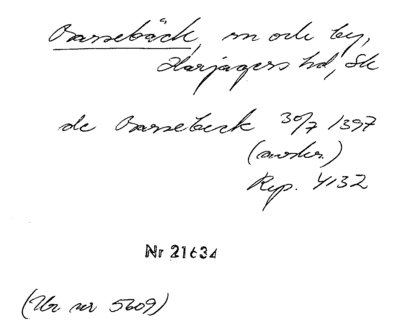 Barsebäck, sn och by,
Harjagers hd, Sk
de Barsebeck 30/7 1397
(avskr.)
Rep. 4132
Nr 21634
(Ur nr 5609)